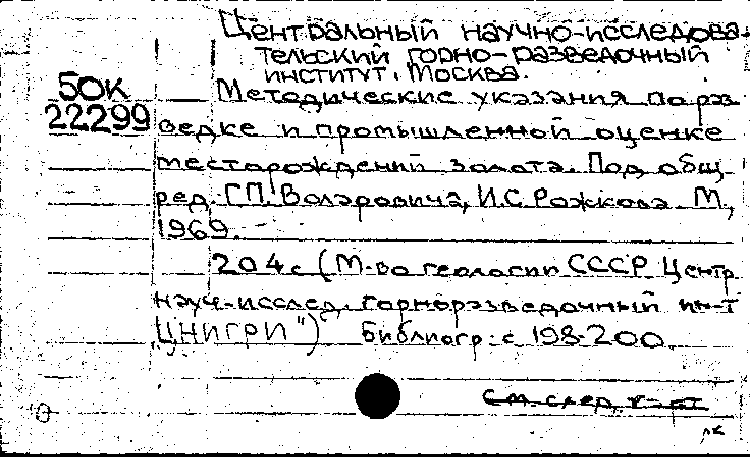 Центральный научно-исследова-
тельский горно-разведочный
институт, Москва.
50К
22299
Методические указания по раз-
ведке и промышленной оценке
месторождений золота. Под общ.
ред. Г.П. Воларовича, И.С. Рожкова. М.,
1969.
204 с (М-во геологии СССР Центр.
науч.-исслед. горноразведочный ин-т
"ЦНИГРИ") Библиогр: с 198-200.
См. след. к-рт